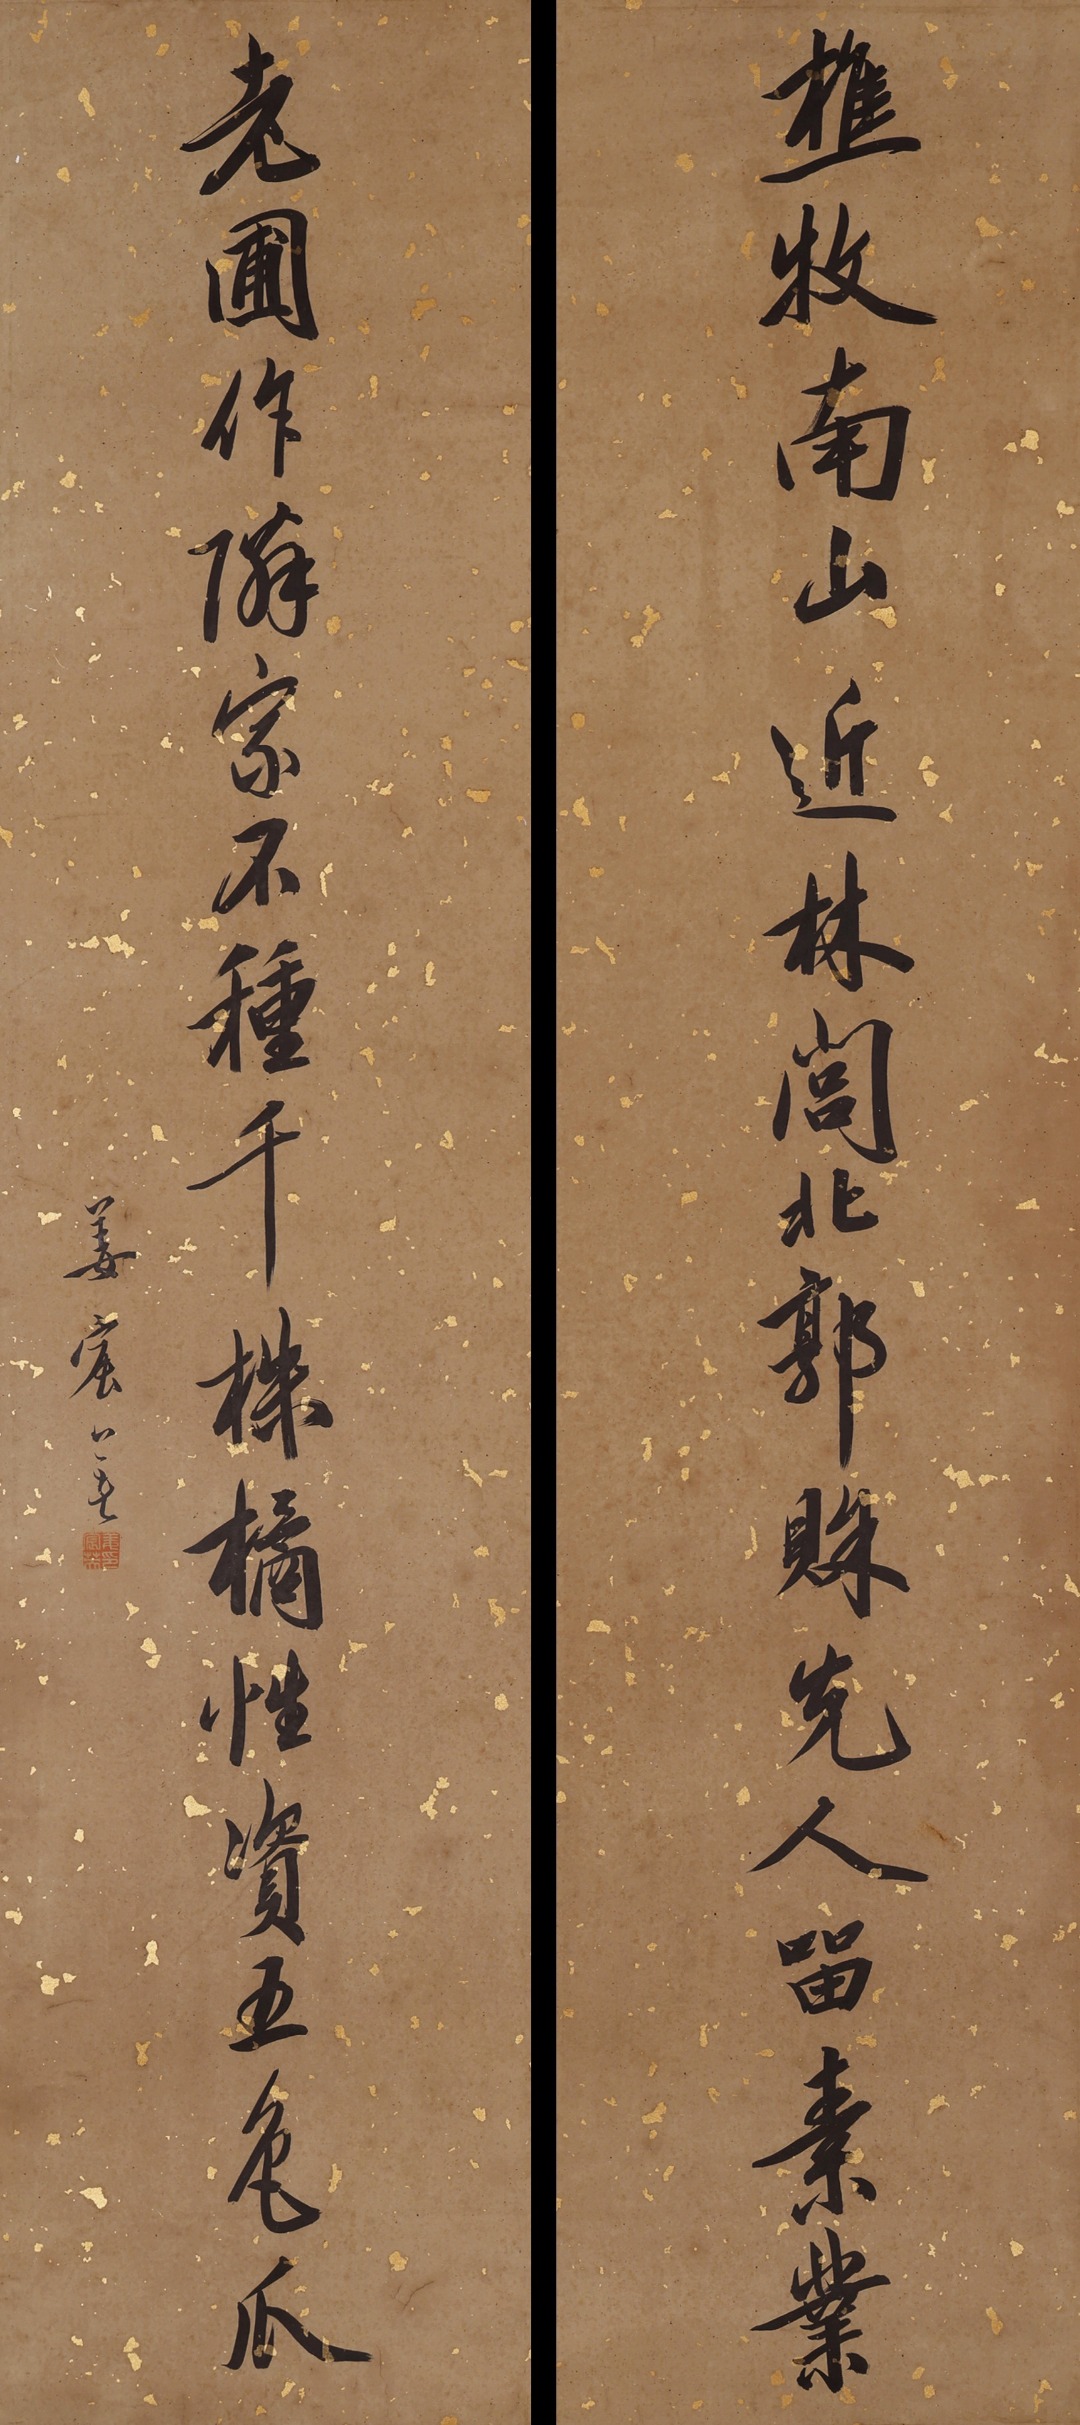 樵牧南山近林閭北郭賖先人留素業
老圃作隣家不種千株橘惟資五色瓜
姜宸英